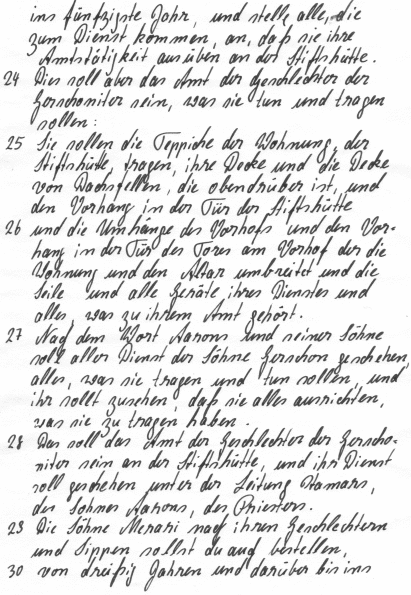 ins fünfzigste Jahr, und stelle alle, die
zum Dienst kommen, an, daß sie ihre
Amtstätigkeit ausüben an der Stiftshütte.
24 Dies soll aber das Amt der Geschlechter der
Gerschoniter sein, was sie tun und tragen
sollen:
25 Sie sollen die Teppiche der Wohnung, der
Stiftshütte, tragen, ihre Decke und die Decke
von Dachsfellen, die obendrüber ist, und
den Vorhang in der Tür der Stiftshütte
26 und die Umhänge des Vorhofs und den Vor-
hang in der Tür des Tores am Vorhof der die
Wohnung und den Altar umbreitet und die
Seile und alle Geräte ihres Dienstes und
alles, was zu ihrem Amt gehört.
27 Nach dem Wort Aarons und seiner Söhne
soll aller Dienst der Söhne Gerschon geschehen,
alles, was sie tragen und tun sollen, und
ihr sollt zusehen, daß sie alles ausrichten,
was sie zu tragen haben.
28 Das soll das Amt der Geschlechter der Gerscho-
niter sein an der Stiftshütte, und ihr Dienst
soll geschehen unter der Leitung Itamars,
des Sohnes Aarons, des Priesters.
29 Die Söhne Merari nach ihren Geschlechtern
und Sippen sollst du auch bestellen,
30 von dreißig Jahren und darüber bis ins